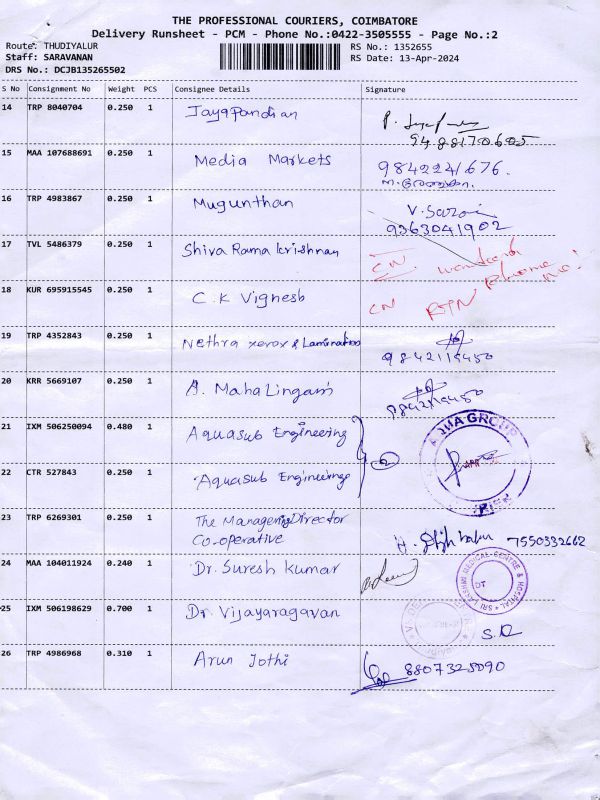 THE PROFESSIONAL COURIERS, COIMBATORE
Delivery Runsheet - PCM - Phone No.:0422-3505555 - Page No.:2
Route: THUDIYALUR RS No.: 1352655
Staff: SARAVANAN RS Date: 13-Apr-2024
DRS No.: DCJB135265502
S No Consignment No Weight PCS Consignee Details Signature
14 TRP 8040704 0.250 1 Jayapandian
9488170605
15 MAA 107688691 0.250 1 Media Markets 9842241676.
16 TRP 4983867 0.250 1 Mugunthan
9363041902
17 TVL 5486379 0.250 1 Shiva Rama krishnan CN
18 KUR 695915545 0.250 1 C.K Vignesh CN RTN
19 TRP 4352843 0.250 1 Nethra xerox & Lamination
9842115450
20 KRR 5669107 0.250 1 A. Mahalingam 9842115450
21 IXM 506250094 0.480 1 Aquasub Engineering
AQUA GROUP
2
22 CTR 527843 0.250 1 Aquasub Engineering
23 TRP 6269301 0.250 1 The Managering Director
Co-operative 7550332662
24 MAA 104011924 0.240 1 Dr. Suresh kumar
SRI LAKSHMI MEDICAL CENTRE & HOSPITAL
OT
25 IXM 506198629 0.700 1 Dr. Vijayaragavan
26 TRP 4986968 0.310 1 Arun Jothi 8807325090